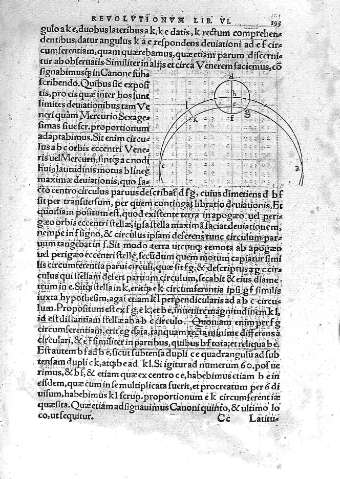 REVOLVTIONVM LIB. VI.
195
gulo a k e, duobus lateribus a k, k e datis, k rectum comprehen
dentibus, datur angulus k a e respondens deuiationi ad e f cir
cumferentiam, quam quærebamus, quæ etiam parum discerni
tur ab obseruatis. Similiter in alijs et circa Venerem faciemus, &
assignabimus in Canone subs
scribendo. Quibus sic exposi
tis, pro eis quæ inter hos sunt
limites deuiationibus tam Ve
neri quàm Mercurio Sexage
simas siue scr. proportionum
adaptabimus. Sit enim circu
lus a b c orbis eccentri Vene
ris uel Mercurij, sintq a c nodi
huius latitudinis motus b limes
maximæ deuiationis, quo fa
cto centro circulus paruus describatur d f g, cuius dimetiens d b f
sit per transuersum, per quem contingat libratio deuiationis. Et
quoniam positum est, quod existente terra in apogæo uel peri
gæo orbis eccentri stellæ, ipsa stella maximā faciat deuiationem,
nempe in f signo, & circulus ipsam deferens tunc circulum par
uum tangebat in f. Sit modo terra utcunq remota ab apogæo
uel perigæo eccentri stellæ, secundum quem motum capiatur simi
lis circumferentia parui circuli, quæ sit f g, & descriptus
culus qui stellam defert paruum circulum, secabit & eius dime
tientem in e. Sit stella in k, eritq e k circumferentia ipsi g f similis
iuxta hypothesim, agatur etiam k l perpendicularis ad a b c circu
lum. Propositum est ex f g, e k, et b e, inuenire magnitudinem k l,
id est distantiam stellæ ab a b c circulo. Quoniam enim per f g
circumferentiam, erit e g data, tanquam recta minime differens à
circulari, & e f similiter in partibus, quibus b f tota; et reliqua b e.
Est autem b f ad b e, sicut subtensa dupli c e quadrantis ad sub
tensam dupli c k, atq b e ad k l. Si igitur ad numerum 60, posue
rimus, & b f, & etiam quæ ex centro c e, habebimus etiam b e in
eisdem, quæ cum in se multiplicata fuerit, et procreatum per 60 di
uisum, habebimus k l scrup. proportionum e k circumferentiæ
quæsita. Quæ etiam adsignauimus Canoni quinto, & ultimo lo
co, ut sequitur.
Cc Latitu-